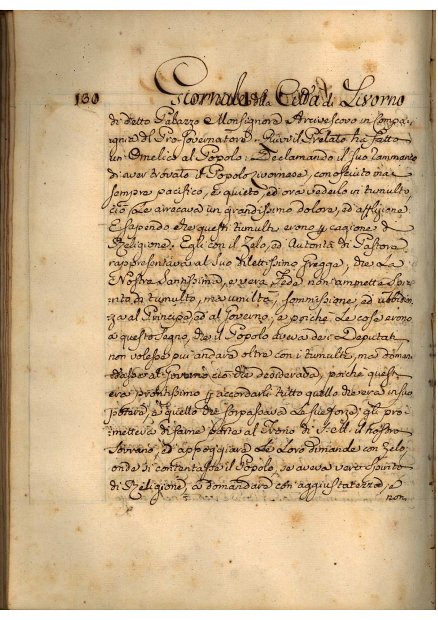 130 Giornale della Città di Livorno
di detto Palazzo Monsignore Arcivescovo in Compa-
gnia del Pro-Governatore. Quivi il Prelato ha fatto
un' Omelia al Popolo: Declamando il suo rammarico
di aver trovato il Popolo Livornese, conosciuto ma
sempre pacifico, e quieto, ed ora vederlo in tumulto,
ciò le arrecava un grandissimo dolore, ed afflizione
E sapendo che questi tumulti erono p cagione di
Religione. Egli con il Zelo, ed Autorità di Pastore
rappresentava al suo dilettissimo Gregge, che La
Nostra Santissima, e vera Fede non ammette Spi-
rito di tumulto, ma umiltà, sommissione, ed ubbidien-
za al Principe, ed al Governo, e poichè Le cose erono
a questo segno, che il Popolo aveva dei Deputati
non volesse piu andare oltre con i tumulti, ma doman-
dasse al Governo ciò che desiderava, poiche questi
era prontissimo p accordarli tutto quello che era in suo
potere, e quello che sorpassava Le sue forze gli pro-
metteva di farne parte al Trono di il nostro
Sovrano, ed appoggiare Le Loro dimande con zelo,
onde si contentasse il Popolo, se aveva vero Spirito
di Religione, a domandare con aggiustatezza, e
non